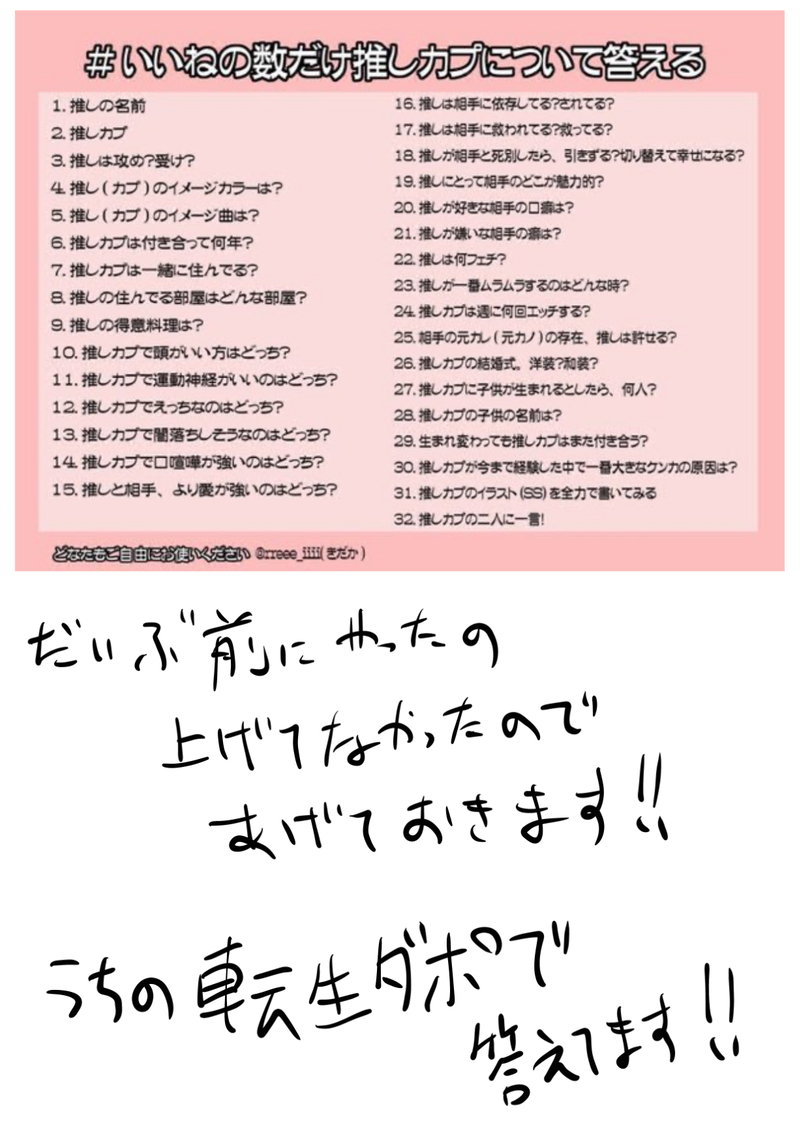 #いいねの数だけ推しカプについて答える
1. 推しの名前
2. 推しカプ
3. 推しは攻め?受け?
4. 推し(カプ)のイメージカラーは?
5. 推し(カプ)のイメージ曲は?
6. 推しカプは付き合って何年?
7. 推しカプは一緒に住んでる?
8. 推しの住んでる部屋はどんな部屋?
9. 推しの得意料理は?
10. 推しカプで頭がいい方はどっち?
11. 推しカプで運動神経がいいのはどっち?
12. 推しカプでえっちなのはどっち?
13. 推しカプで闇落ちしそうなのはどっち?
14. 推しカプで口喧嘩が強いのはどっち?
15. 推しと相手、より愛が強いのはどっち?
16. 推しは相手に依存してる?されてる?
17. 推しは相手に救われてる?救ってる?
18. 推しが相手と死別したら、引きずる?切り替えて幸せになる?
19. 推しにとって相手のどこが魅力的?
20. 推しが好きな相手の口癖は?
21. 推しが嫌いな相手の癖は?
22. 推しは何フェチ?
23. 推しが一番ムラムラするのはどんな時?
24. 推しカプは週に何回エッチする?
25. 相手の元カレ(元カノ)の存在、推しは許せる?
26. 推しカプの結婚式。洋装?和装?
27. 推しカプに子供が生まれるとしたら、何人?
28. 推しカプの子供の名前は?
29. 生まれ変わっても推しカプはまた付き合う?
30. 推しカプが今まで経験した中で一番大きなケンカの原因は?
31. 推しカプのイラスト(SS)を全力で書いてみる
32. 推しカプの二人に一言!
どなたもご自由にお使いください @rreee_iiii(きだか)
だいぶ前にやったの
上げてなかったので
あげておきます!!
うちの転生ダポで
答えてます!!